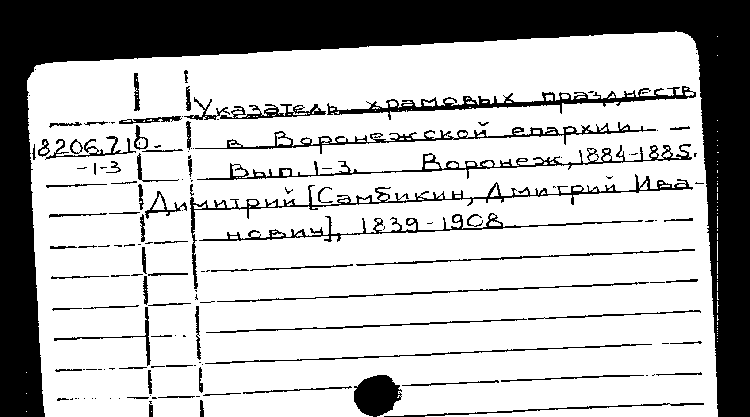 Указатель храмовых празднеств
18206.710- в Воронежской епархии. —
-1-3 Вып. 1-3. Воронеж, 1884-1885.
Димитрий [Самбикин, Дмитрий Ива-
нович], 1839-1908.